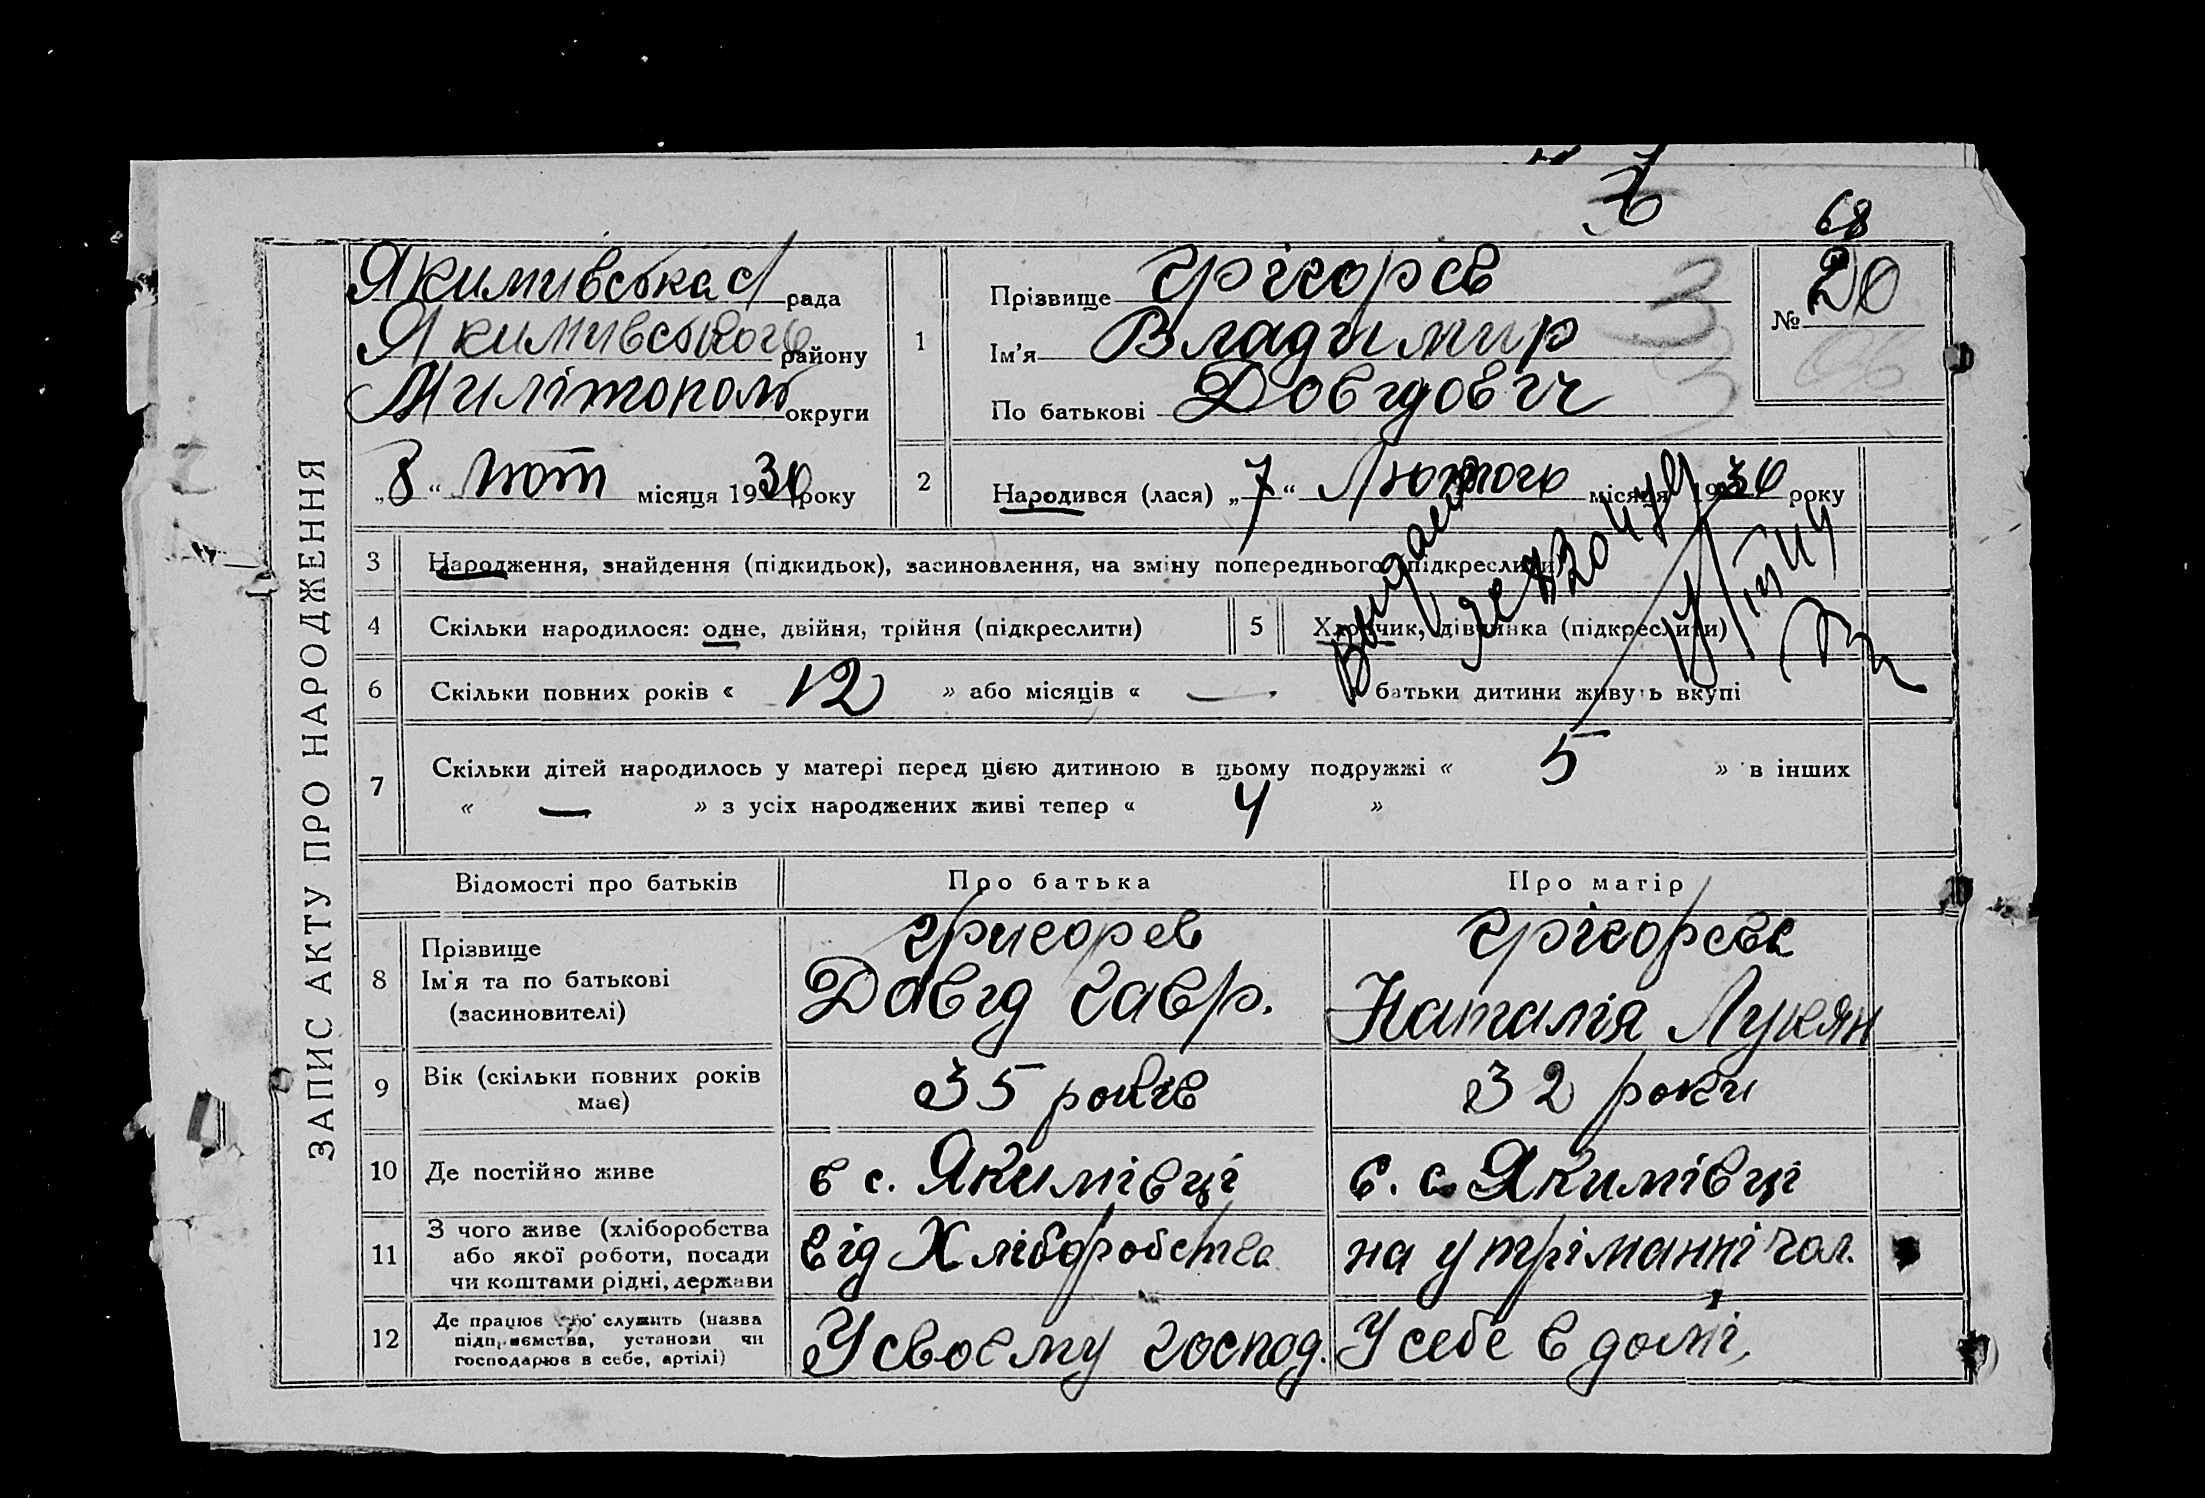 68
ЗАПИС АКТУ ПРО НАРОДЖЕННЯ
Якимивська с/рада
Якимивського району
Милітополь округи
„8“ лют місяця 1930 року
1
Прізвище Грігорєв
Ім'я Владимир
По батькові Довідовіч
№ 20
2
Народився (лася) „7“ Лютого місяця 1930 року
3 Народження, знайдення (підкидьок), засиновлення, на зміну попереднього (підкреслити)
4 Скільки народилося: одне, двійня, трійня (підкреслити)
5 Хлопчик, дівчинка (підкреслити)
6 Скільки повних років « 12 » або місяців « — » батьки дитини живуть вкупі
7 Скільки дітей народилось у матері перед цією дитиною в цьому подружжі « 5 » в інших
« — » з усіх народжених живі тепер « 4 »
Відомості про батьків Про батька Про матір
8 Прізвище
Ім'я та по батькові
(засиновителі)
Григорев
Давід Гавр.
Грігорєва
Наталія Лукян
9 Вік (скільки повних років
має)
35 років
32 роки
10 Де постійно живе
в с. Якимівці
в. с. Якимівці
11 З чого живе (хліборобства
або якої роботи, посади
чи коштами рідні, держави
від Хліборобства
на утріманні чол.
12 Де працює або служить (назва
підприємства, установи чи
господарює в себе, артілі)
У своєму господ.
У себе в домі,